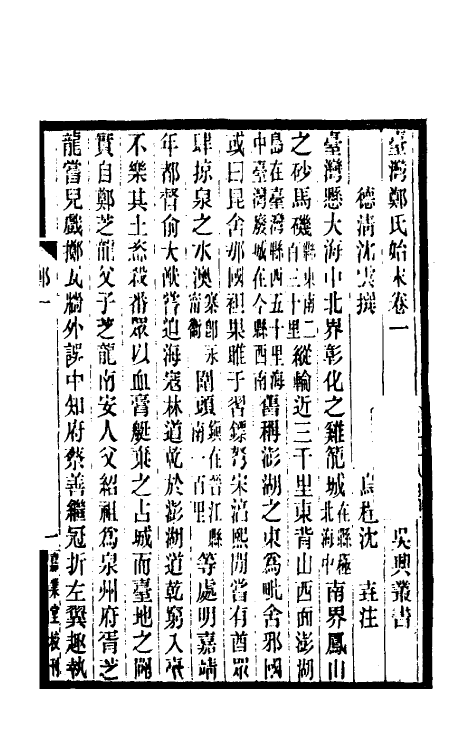 臺灣鄭氏始末卷一 吳興叢書
德清沈雲撰 烏程沈垚注
臺灣懸大海中北界彰化之雞籠城在縣極北海中南界鳳山
之砂馬磯縣東南二百三十里縱輸近三千里東背山西面澎湖
島在臺灣縣西五十里海中臺灣廢城在今縣西南舊稱澎湖之東爲毗舍邪國
或曰昆舍那國狙果睢于習鏢弩宋淳熙閒嘗有酋眾
肆掠泉之水澳寨卽永甯衛圍頭鎮在晉江縣南一百里等處明嘉靖
年都督俞大猷嘗迫海寇林道乾於澎湖道乾窮入臺
不樂其土盡殺番眾以血膏艇棄之占城而臺地之闢
實自鄭芝龍父子芝龍南安人父紹祖爲泉州府胥芝
龍嘗兒戲擲瓦牆外誤中知府蔡善繼冠折左翼趣執
鄭一
一
嘉業堂校刊